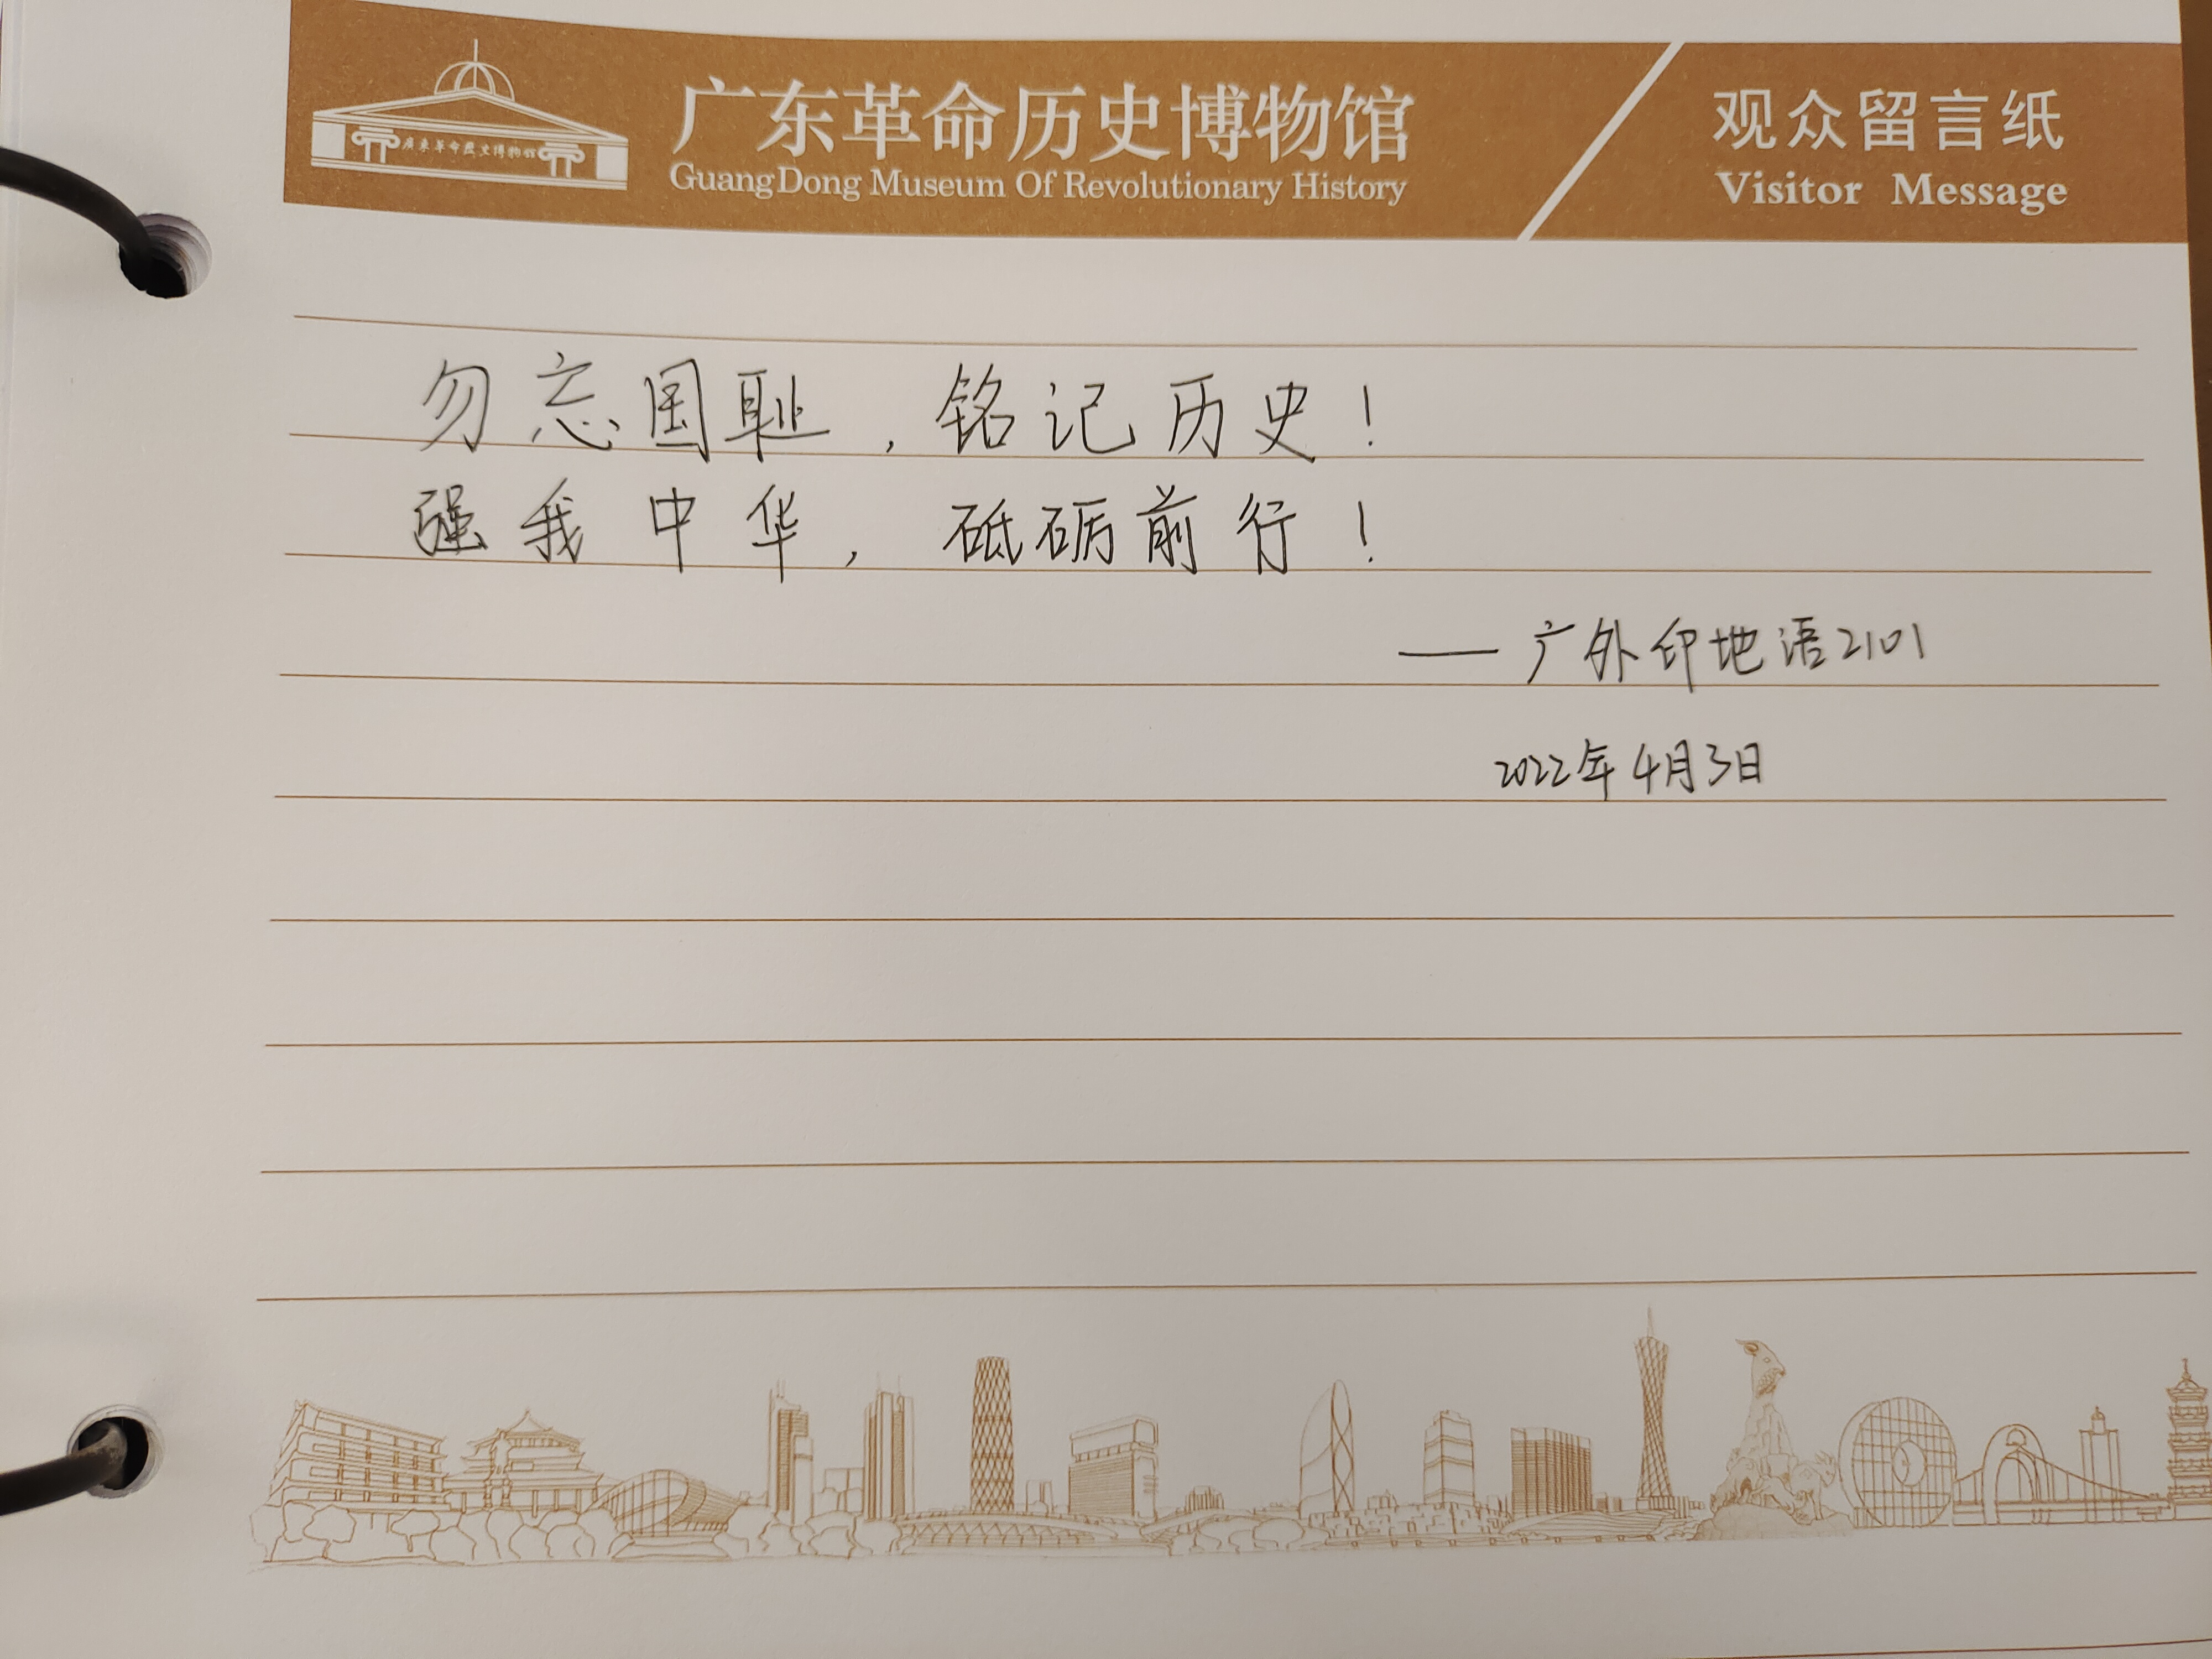 廣東革命歷史博物館
广东革命历史博物馆
GuangDong Museum Of Revolutionary History
观众留言纸
Visitor Message
勿忘国耻，铭记历史！
强我中华，砥砺前行！
——广外印地语2101
2022年4月3日